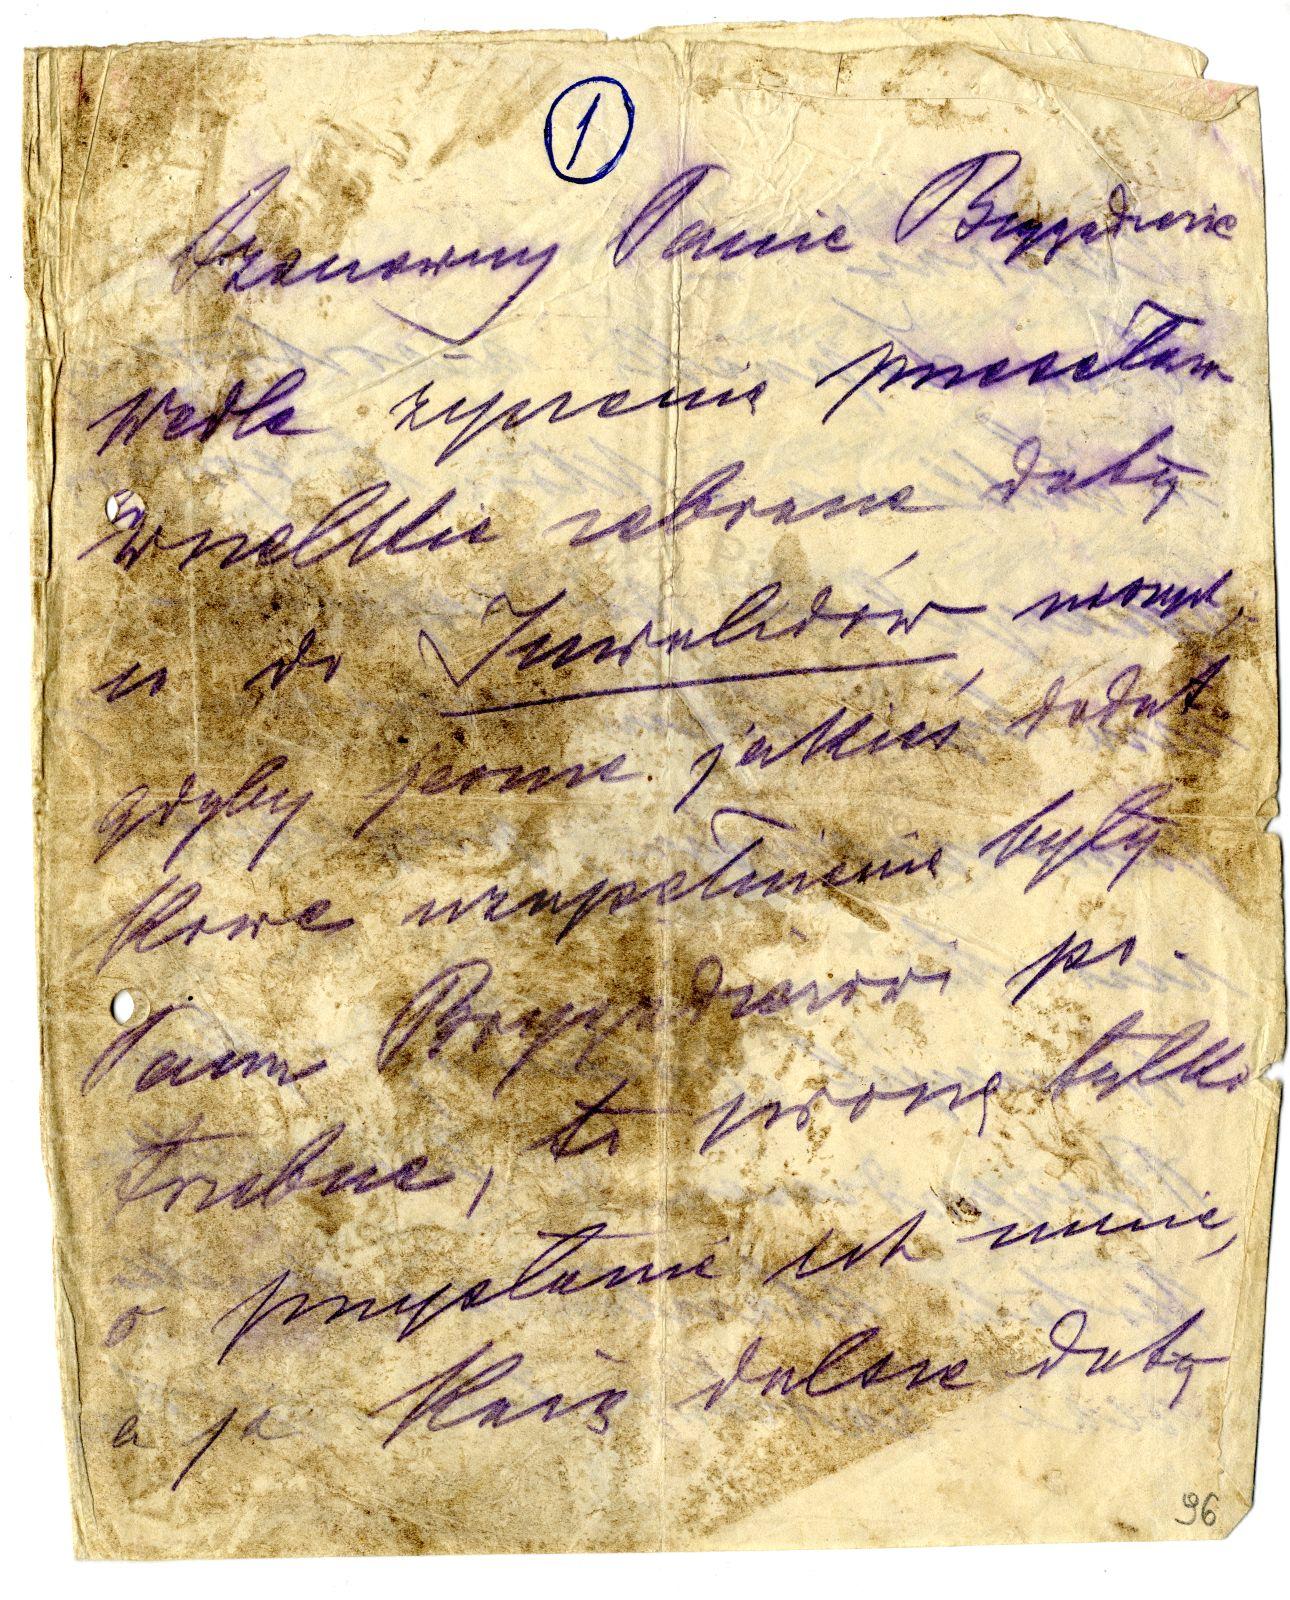 1
Szanowny Panie Brygadierze
Wedle życzenia przesełam
wszelkie zebrane daty
co do Inwalidów
gdyby Panu jakieś dodat
kowe uzupełnienia były
Panu Brygadierowi po-
trzebne, to proszę tylko
o przysłanie ich mnie,
a ja każę dalsze daty
96